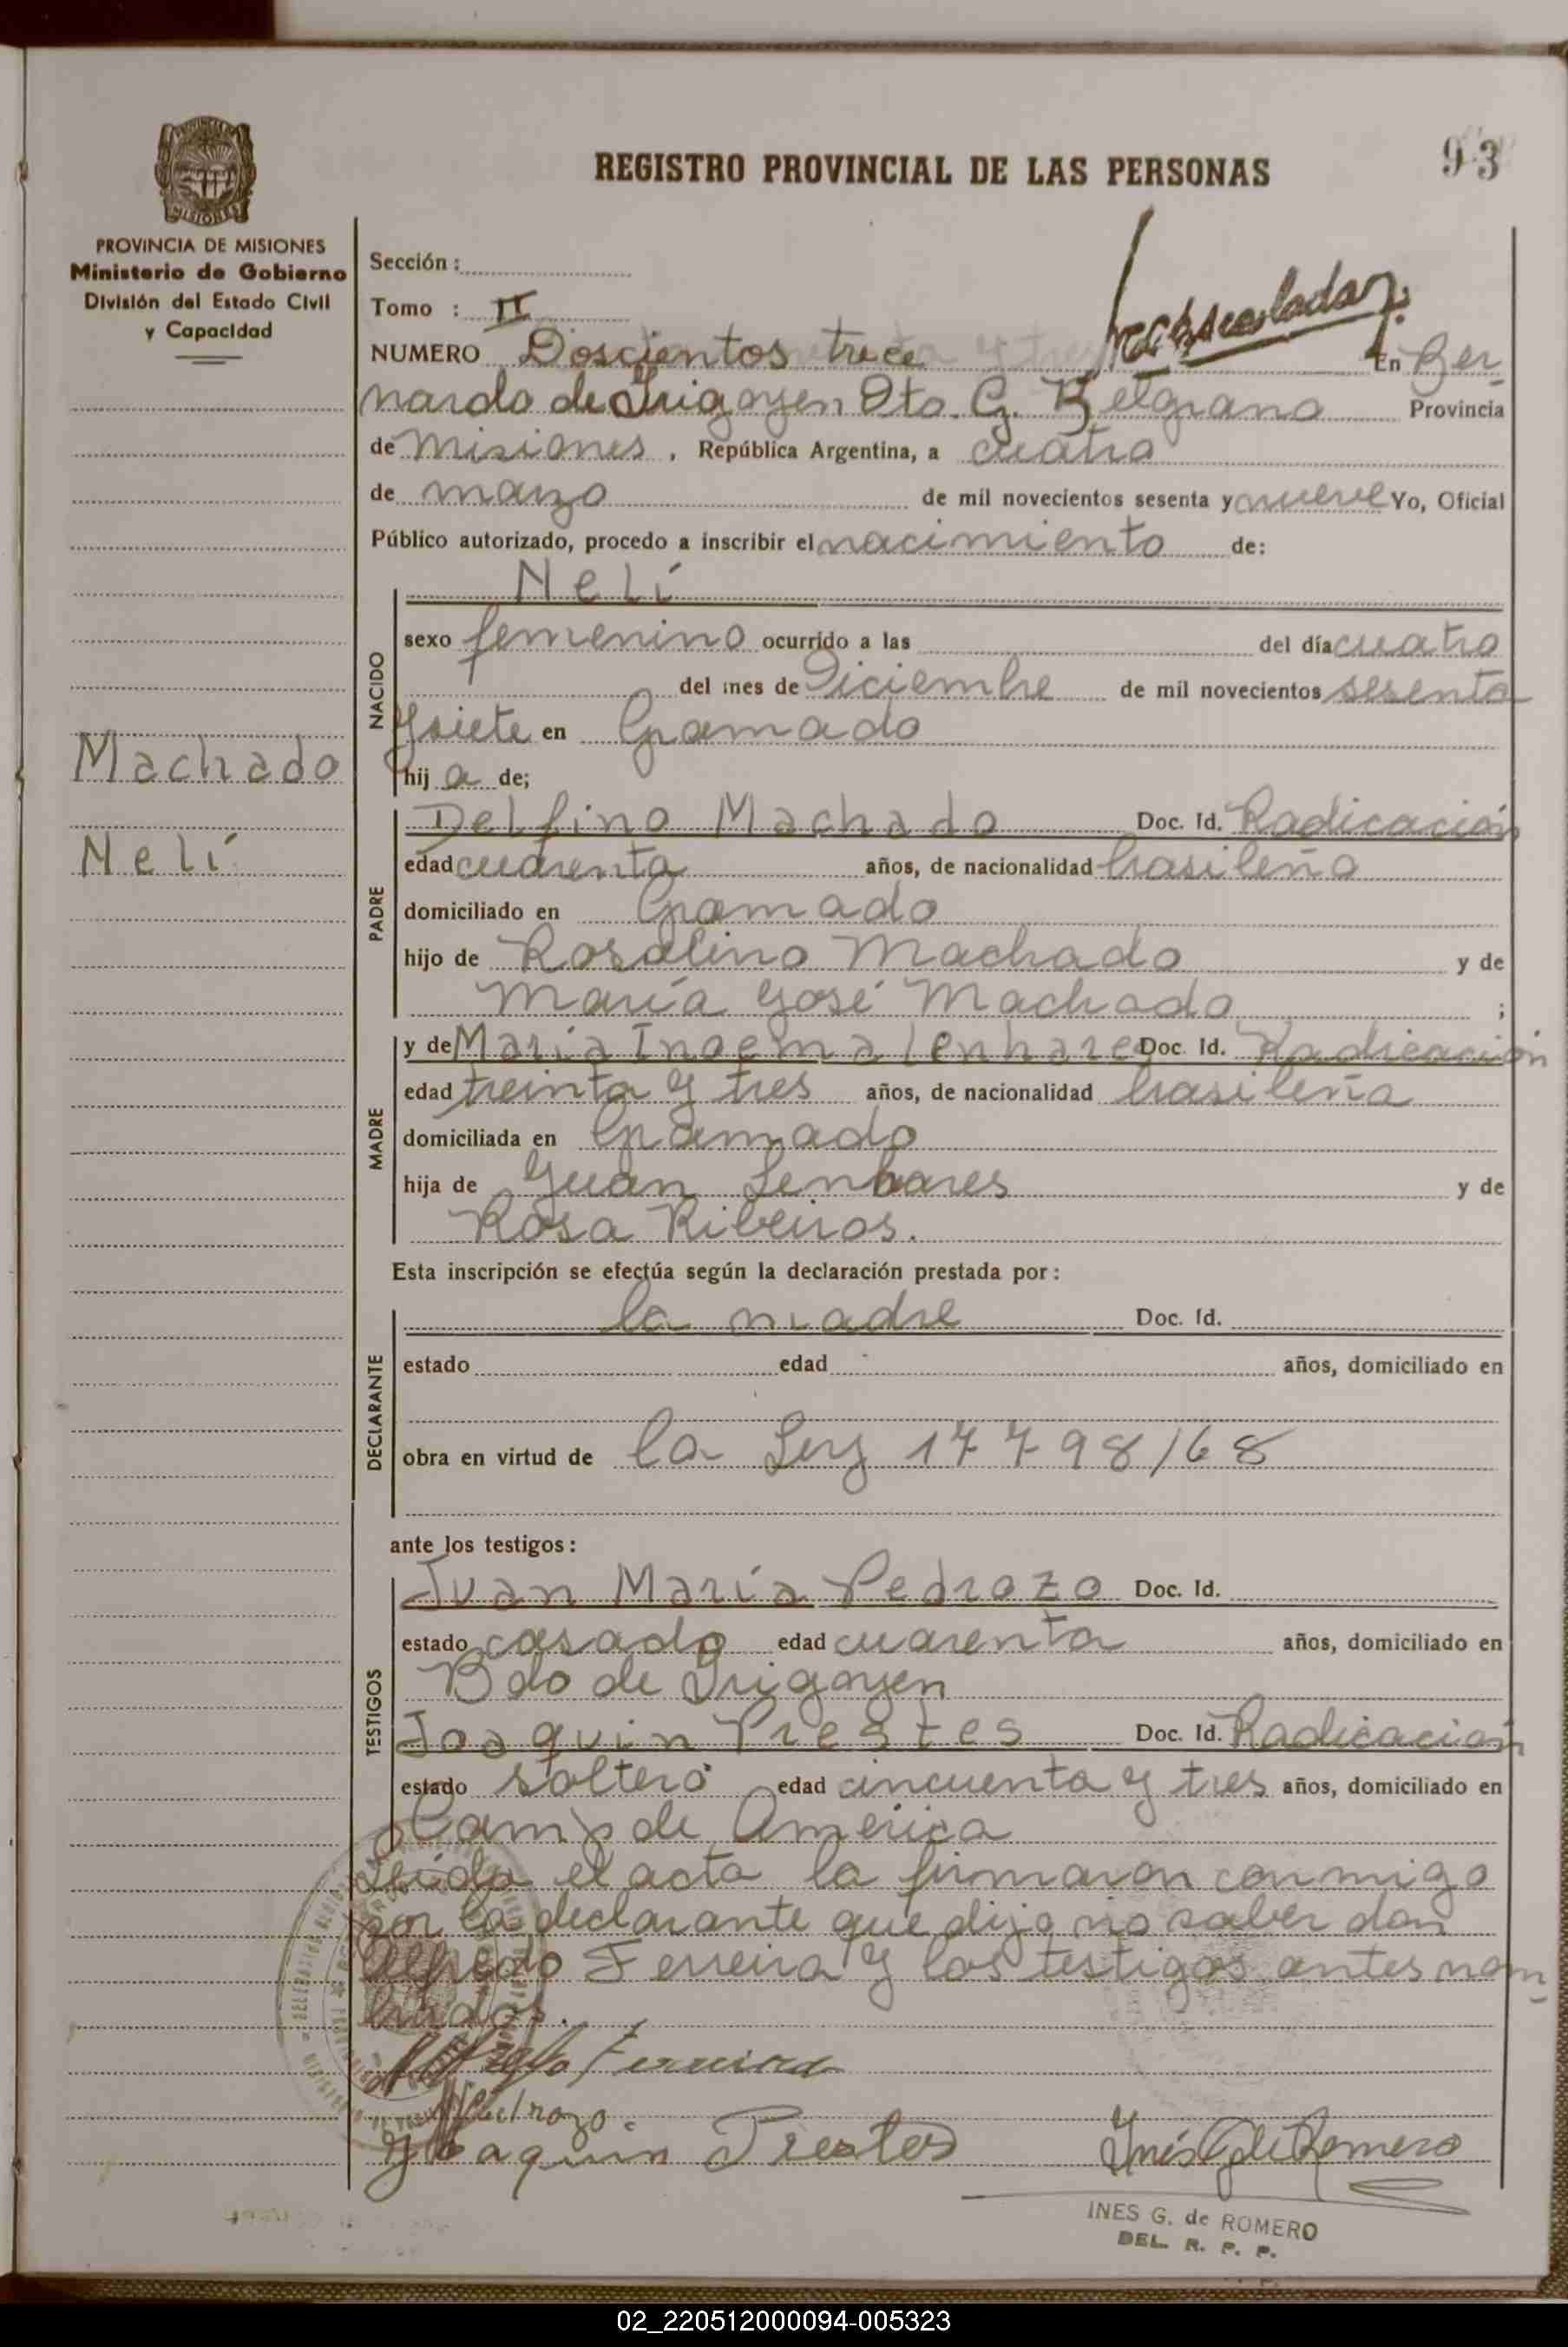 93
REGISTRO PROVINCIAL DE LAS PERSONAS
PROVINCIA DE MISIONES
Ministerio de Gobierno
División del Estado Civil
y Capacidad
Sección :
Tomo : II
NUMERO Doscientos trece En Ber-
nardo de Irigoyen Dto. G. Belgrano Provincia
de Misiones, República Argentina, a cuatro
de marzo de mil novecientos sesenta y nueve Yo, Oficial
Público autorizado, procedo a inscribir el nacimiento de:
NACIDO
Nelí
sexo femenino ocurrido a las del día cuatro
del mes de Diciembre de mil novecientos sesenta
y siete en Gramado
hij a de;
Machado
Nelí
PADRE
Delfino Machado Doc. Id. Radicación
edad cuarenta años, de nacionalidad brasileña
domiciliado en Gramado
hijo de Rosalino Machado y de
María José Machado ;
MADRE
y de María Inoema Lenhares Doc. Id. Radicación
edad treinta y tres años, de nacionalidad brasileña
domiciliada en Gramado
hija de Juan Lenhares y de
Rosa Ribeiros.
Esta inscripción se efectúa según la declaración prestada por :
DECLARANTE
la madre Doc. Id.
estado edad años, domiciliado en
obra en virtud de la Ley 17798/68
ante los testigos :
TESTIGOS
Juan María Pedrozo Doc. Id.
estado casado edad cuarenta años, domiciliado en
Bdo de Irigoyen
Joaquin Prestes Doc. Id. Radicación
estado soltero edad cincuenta y tres años, domiciliado en
Camp de América
Leida el acta la firmaron conmigo
por la declarante que dijo no saber don
Alfredo Ferreira y los testigos antes nom-
brados.
Alfredo Ferreira
Pedrozo.
Joaquin Prestes Inés G de Romero
INES G. de ROMERO
DEL. R. P. P.
02_220512000094-005323